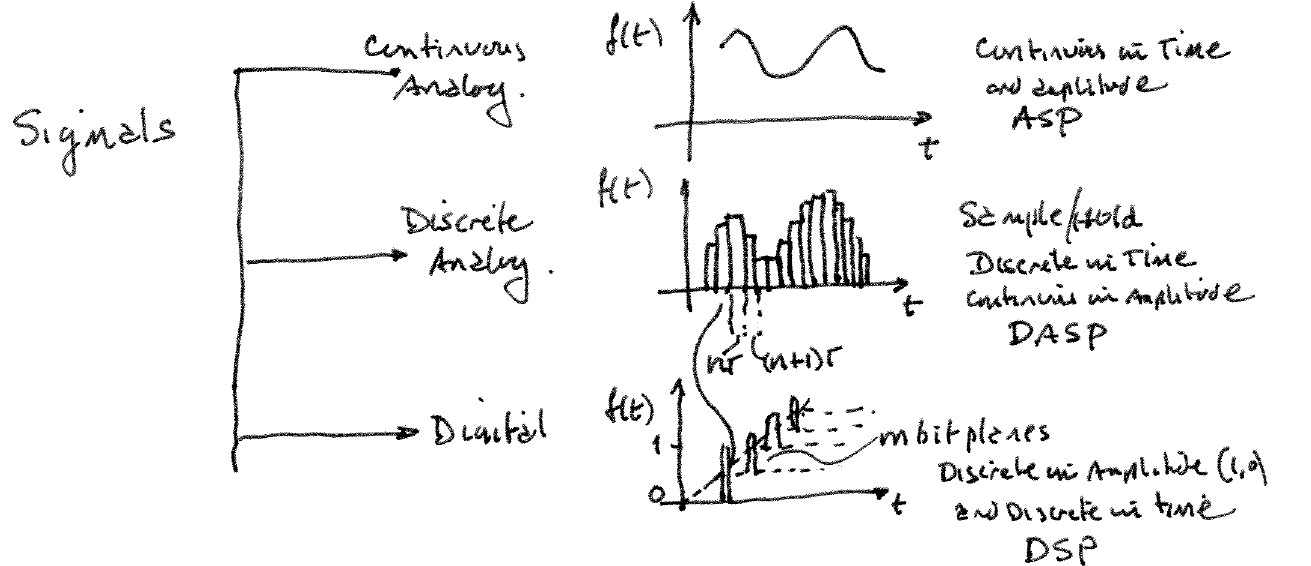 Signals
Continuous
Analog.
f(t)
t
Continuous in Time
and amplitude
ASP
Discrete
Analog.
f(t)
t
nT (n+1)T
Sample/Hold
Discrete in Time
Continuous in Amplitude
DASP
Digital
f(t)
1
0
t
m bit planes
Discrete in Amplitude (1,0)
and Discrete in time
DSP